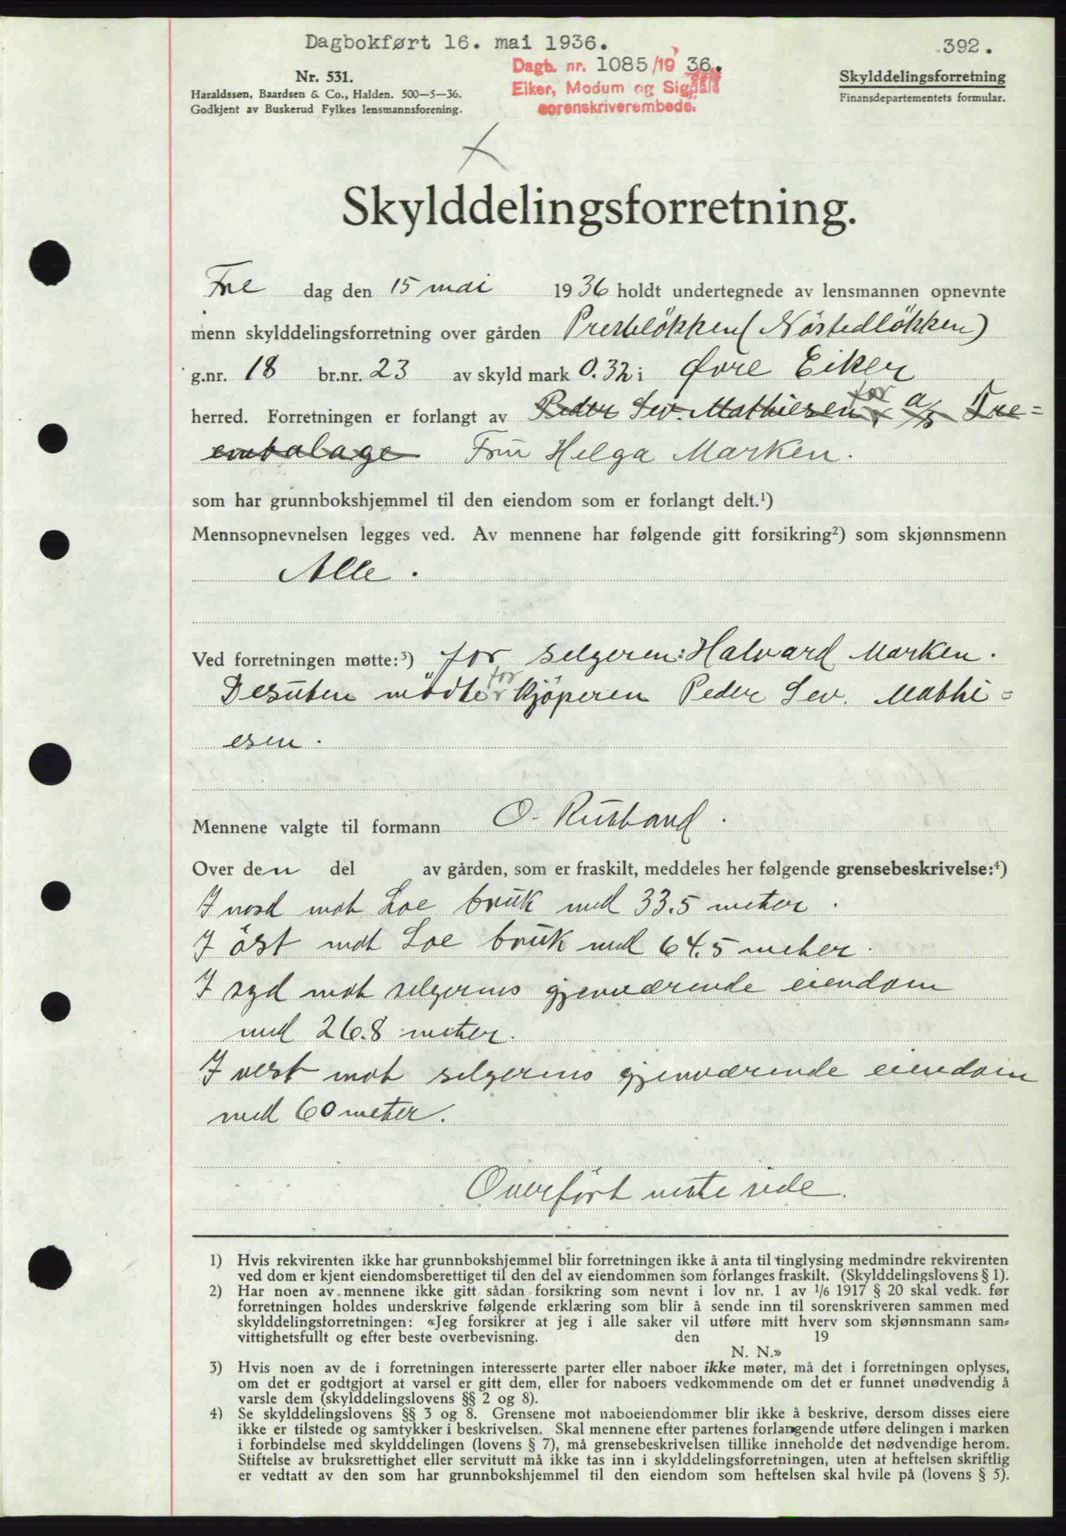 Dagbokført 16. mai 1936.
392.
Dagb. nr. 1085/1936.
Eiker, Modum og Sigdal
sorenskriverembede.
Nr. 531.
Haraldssen, Baardsen & Co., Halden. 500—5—36.
Godkjent av Buskerud Fylkes lensmannsforening.
Skylddelingsforretning
Finansdepartementets formular.
Skylddelingsforretning.
Fre dag den 15 mai 1936 holdt undertegnede av lensmannen opnevnte
menn skylddelingsforretning over gården Presteløkken (Nöstedløkken)
g.nr. 18 br.nr. 23 av skyld mark 0.32 i Øvre Eiker
herred. Forretningen er forlangt av Peder Sev. Mathiesen, for a/s Tre=
embalage Frü Helga Marken.
som har grunnbokshjemmel til den eiendom som er forlangt delt.¹)
Mennsopnevnelsen legges ved. Av mennene har følgende gitt forsikring²) som skjønnsmenn
Alle.
Ved forretningen møtte:³) for selgeren: Halvard Marken.
Desüten mödte for kjöperen Peder Sev. Mathi=
esen.
Mennene valgte til formann O. Rustand.
Over den del av gården, som er fraskilt, meddeles her følgende grensebeskrivelse:⁴)
I nord mot Loe brük med 33.5 meter.
I öst mot Loe brük med 64.5 meter.
I syd mot selgerens gjenværende eiendom
med 26.8 meter.
I vest mot selgerens gjenværende eiendom
med 60 meter.
Overfört neste side.
1) Hvis rekvirenten ikke har grunnbokshjemmel blir forretningen ikke å anta til tinglysing medmindre rekvirenten
ved dom er kjent eiendomsberettiget til den del av eiendommen som forlanges fraskilt. (Skylddelingslovens § 1).
2) Har noen av mennene ikke gitt sådan forsikring som nevnt i lov nr. 1 av 1/6 1917 § 20 skal vedk. før
forretningen holdes underskrive følgende erklæring som blir å sende inn til sorenskriveren sammen med
skylddelingsforretningen: «Jeg forsikrer at jeg i alle saker vil utføre mitt hverv som skjønnsmann sam=
vittighetsfullt og efter beste overbevisning. den 19
N. N.»
3) Hvis noen av de i forretningen interesserte parter eller naboer ikke møter, må det i forretningen oplyses,
om det er godtgjort at varsel er gitt dem, eller for naboers vedkommende om det er funnet unødvendig å
varsle dem (skylddelingslovens §§ 2 og 8).
4) Se skylddelingslovens §§ 3 og 8. Grensene mot naboeiendommer blir ikke å beskrive, dersom disses eiere
ikke er tilstede og samtykker i beskrivelsen. Skal mennene efter partenes forlangende utføre delingen i marken
i forbindelse med skylddelingen (lovens § 7), må grensebeskrivelsen tillike inneholde det nødvendige herom.
Stiftelse av bruksrettighet eller servitutt må ikke tas inn i skylddelingsforretningen, uten at heftelsen skriftlig
er vedtatt av den som har grunnbokshjemmel til den eiendom som heftelsen skal hvile på (lovens § 5).